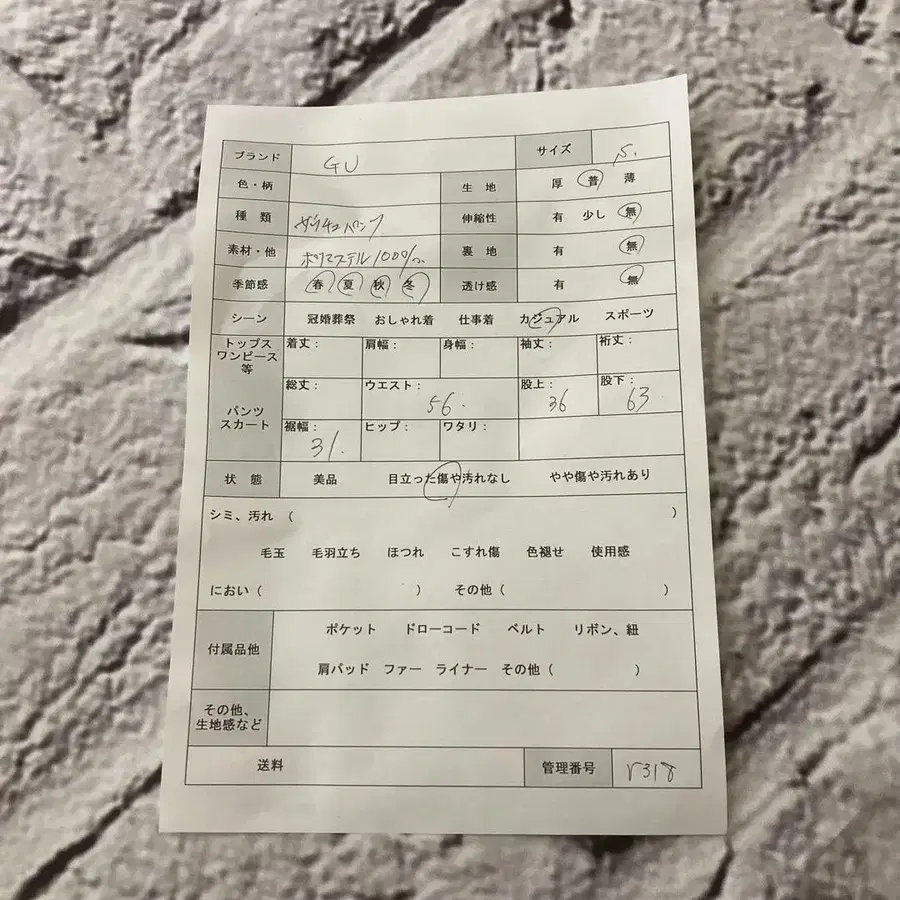 ブランド GU サイズ S.
色・柄 生地 厚 普 薄
種類 ガウチョパンツ 伸縮性 有 少し 無
素材・他 ポリエステル100% 裏地 有 無
季節感 春 夏 秋 冬 透け感 有 無
シーン 冠婚葬祭 おしゃれ着 仕事着 カジュアル スポーツ
トップス ワンピース 等 着丈: 肩幅: 身幅: 袖丈: 裄丈:
パンツ スカート 総丈: ウエスト: 56. 股上: 36 股下: 63
裾幅: 31. ヒップ: ワタリ:
状態 美品 目立った傷や汚れなし やや傷や汚れあり
シミ、汚れ ( )
毛玉 毛羽立ち ほつれ こすれ傷 色褪せ 使用感
におい ( ) その他 ( )
付属品他 ポケット ドローコード ベルト リボン、紐
肩パッド ファー ライナー その他 ( )
その他、
生地感など
送料 管理番号 r318